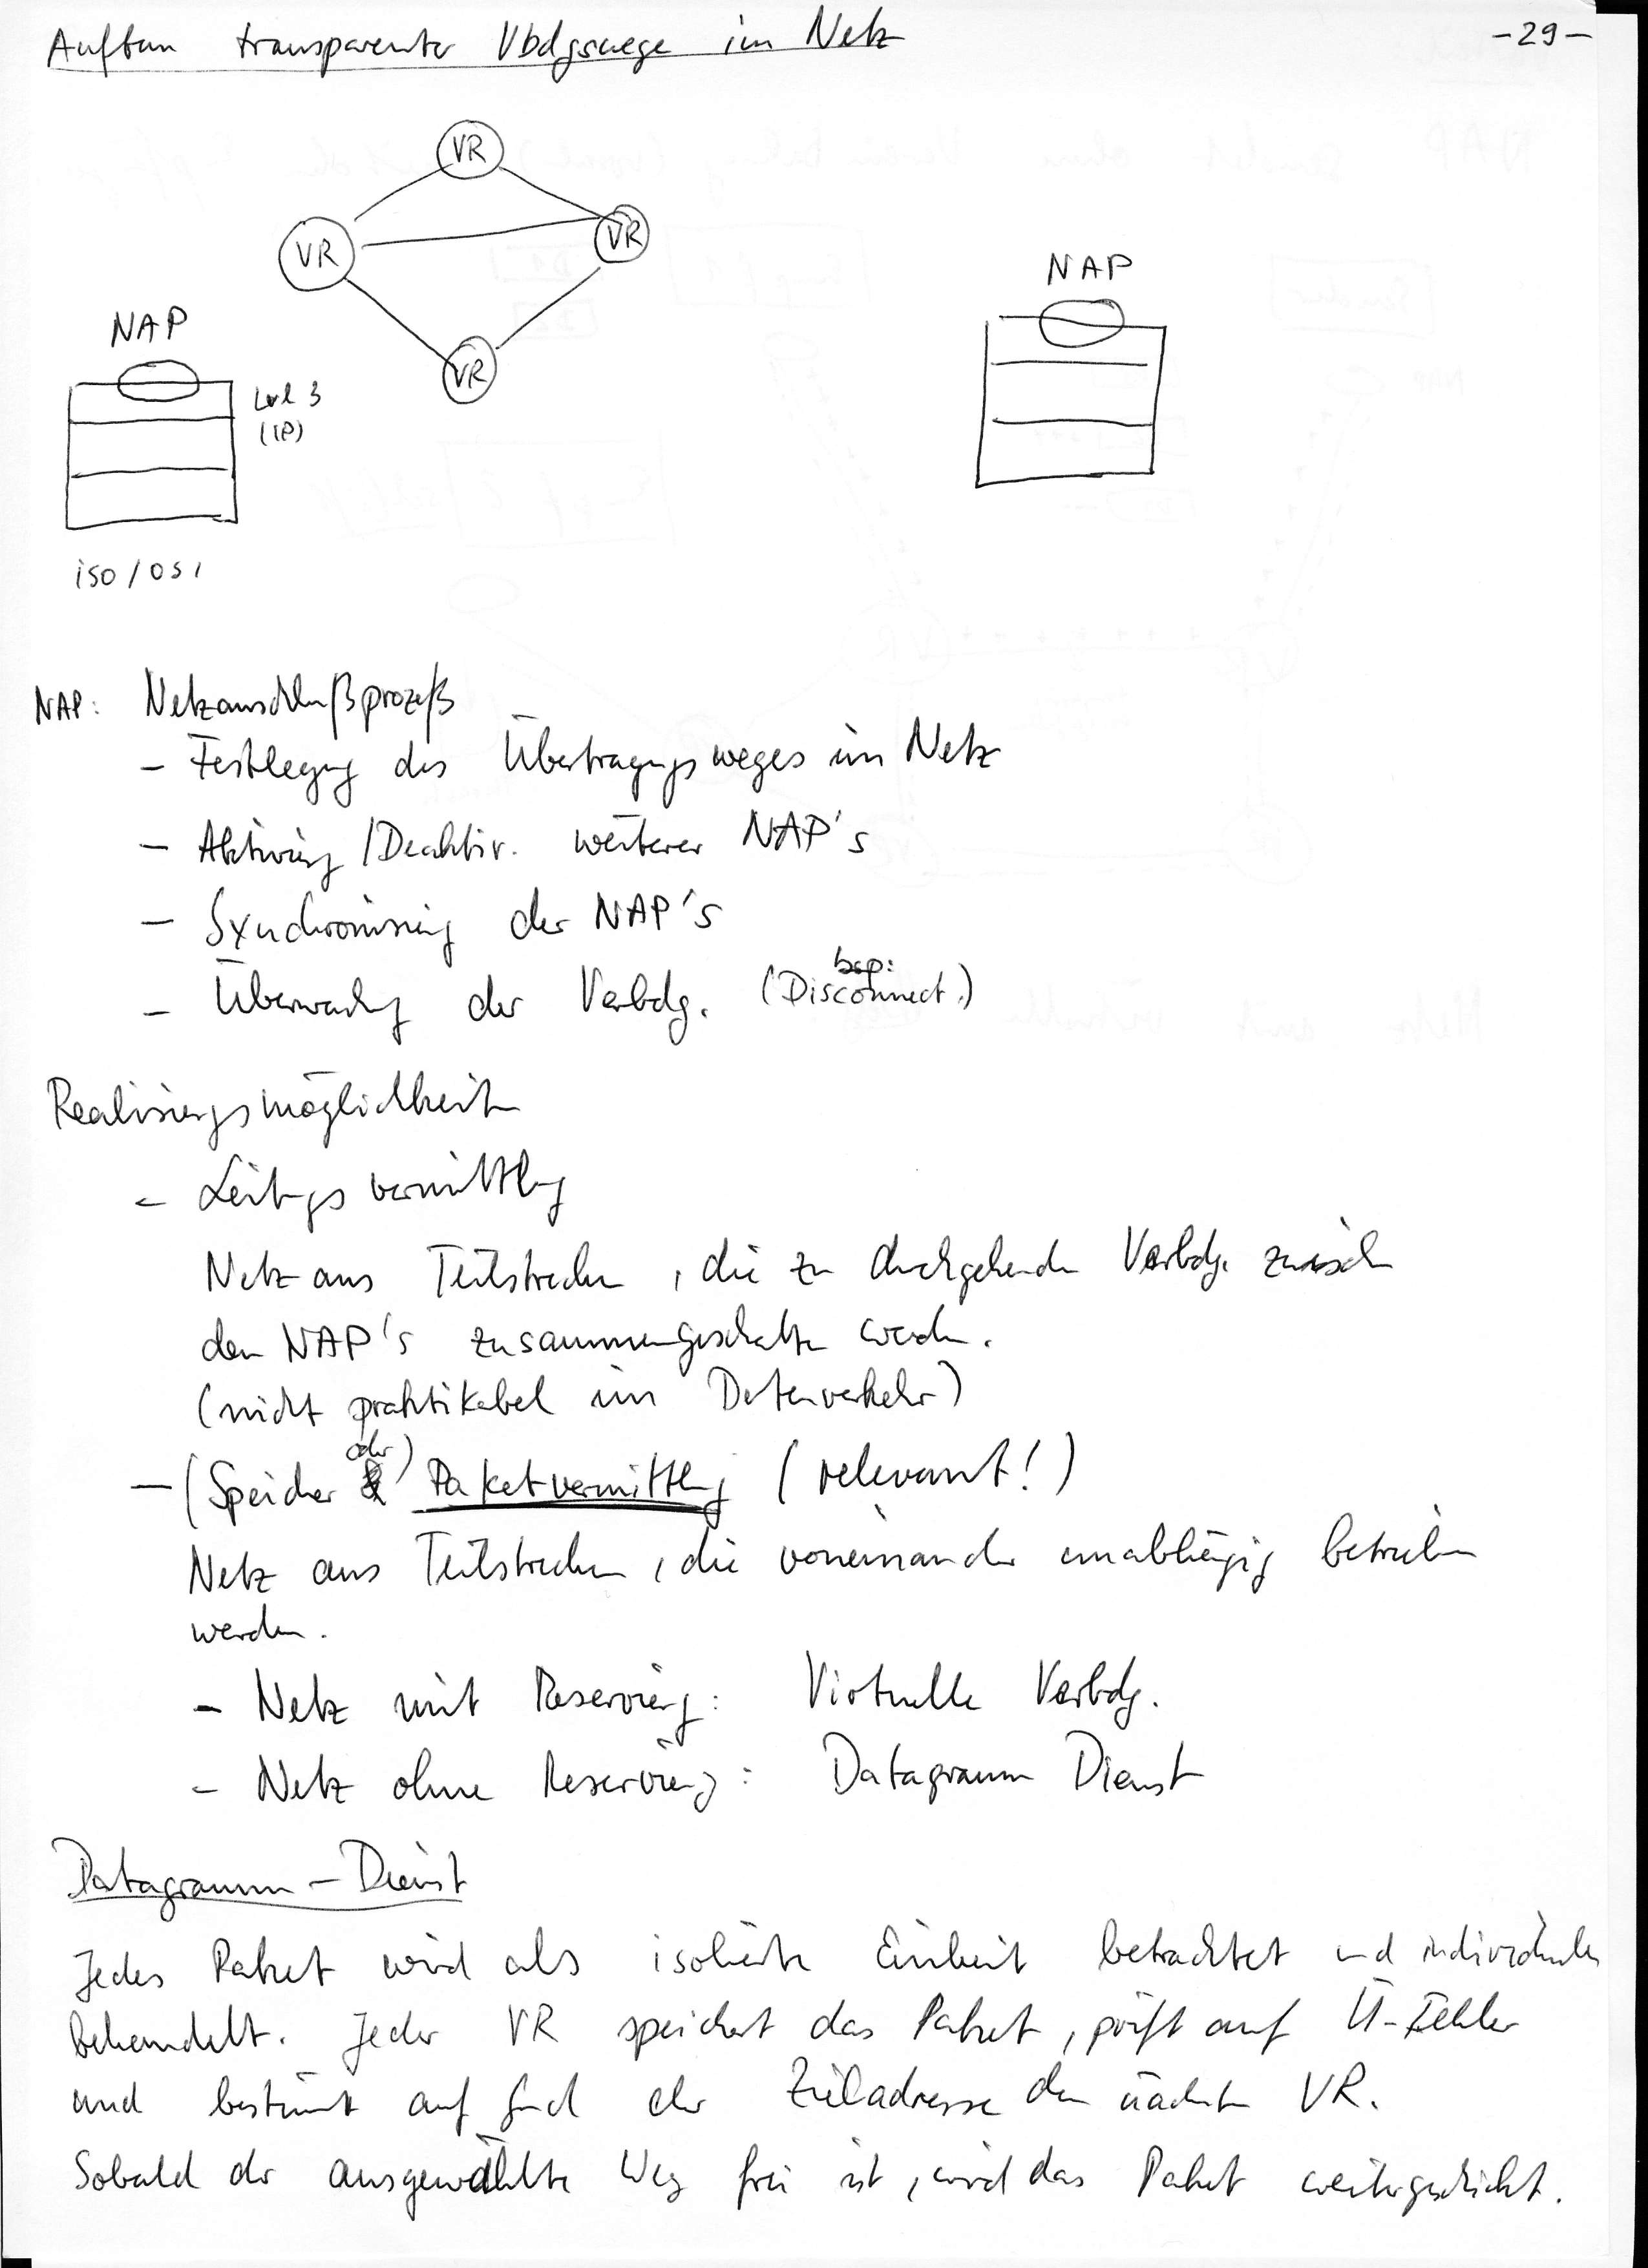 Aufbau transparenter Vbdgswege im Netz
-29-
VR
VR
VR
VR
NAP
NAP
Lvl 3
(IP)
ISO/OSI
NAP: Netzanschlußprozeß
- Festlegung des Übertragungsweges im Netz
- Aktivierung/Deaktiv. weiterer NAP's
- Synchronisierung der NAP's
- Überwachung der Verbdg. (bsp: Disconnect.)
Realisierungsmöglichkeiten
- Leitungsvermittlung
Netz aus Teilstrecken, die zu durchgehenden Verbdg. zwischen
den NAP's zusammengeschaltet werden.
(nicht praktikabel im Datenverkehr)
- (Speicher oder) Paketvermittlung (relevant!)
Netz aus Teilstrecken, die voneinander unabhängig betrieben
werden.
- Netz mit Reservierung: Virtuelle Verbdg.
- Netz ohne Reservierung: Datagramm Dienst
Datagramm-Dienst
Jedes Paket wird als isolierte Einheit betrachtet und individuell
behandelt. Jeder VR speichert das Paket, prüft auf Ü-Fehler
und bestimmt auf Grund der Zieladresse den nächsten VR.
Sobald der ausgewählte Weg frei ist, wird das Paket weitergeschickt.